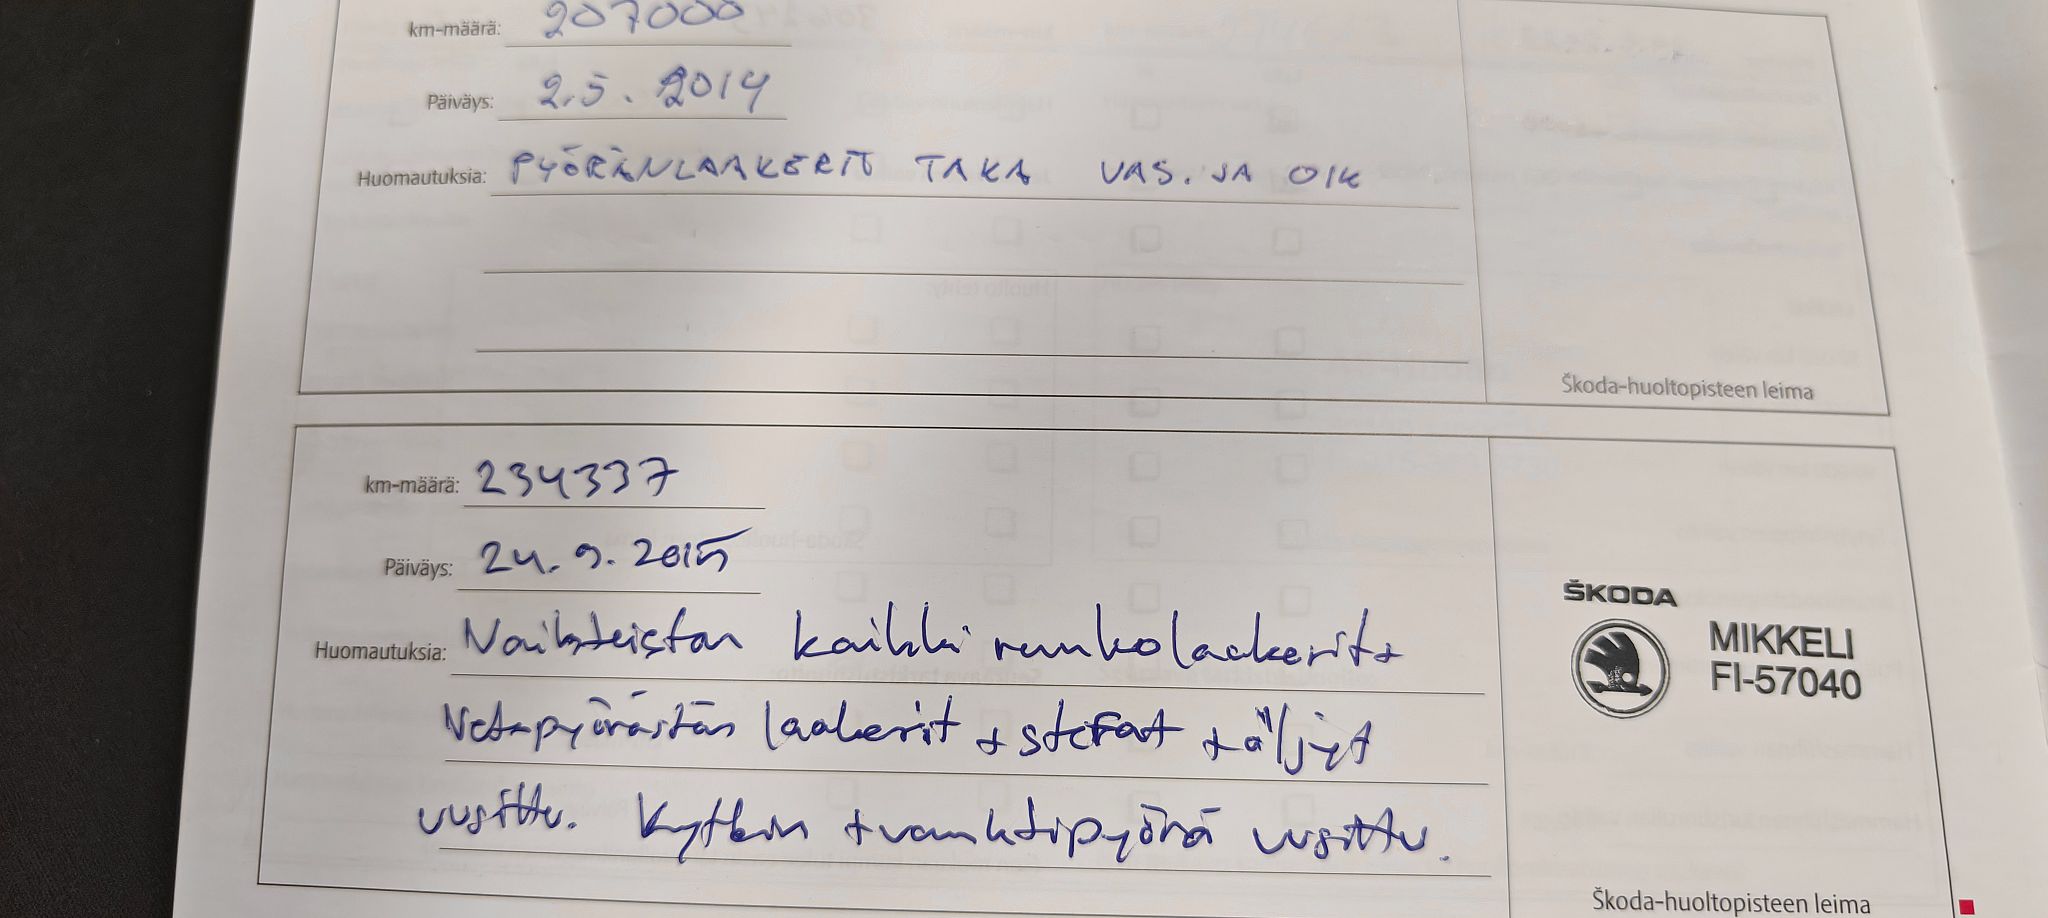 km-määrä: 207000
Päiväys: 2.5. 2014
Huomautuksia: PYÖRÄNLAAKERIT TAKA VAS. JA OIK
Škoda-huoltopisteen leima
km-määrä: 234337
Päiväys: 24.9.2015
Huomautuksia: Vaihteistan kaikki runkolaakerit+
Vetopyörästön laakerit + stefat + äljyt
uusittu. Kytkin + vauhtipyörä uusittu.
ŠKODA
MIKKELI
FI-57040
Škoda-huoltopisteen leima